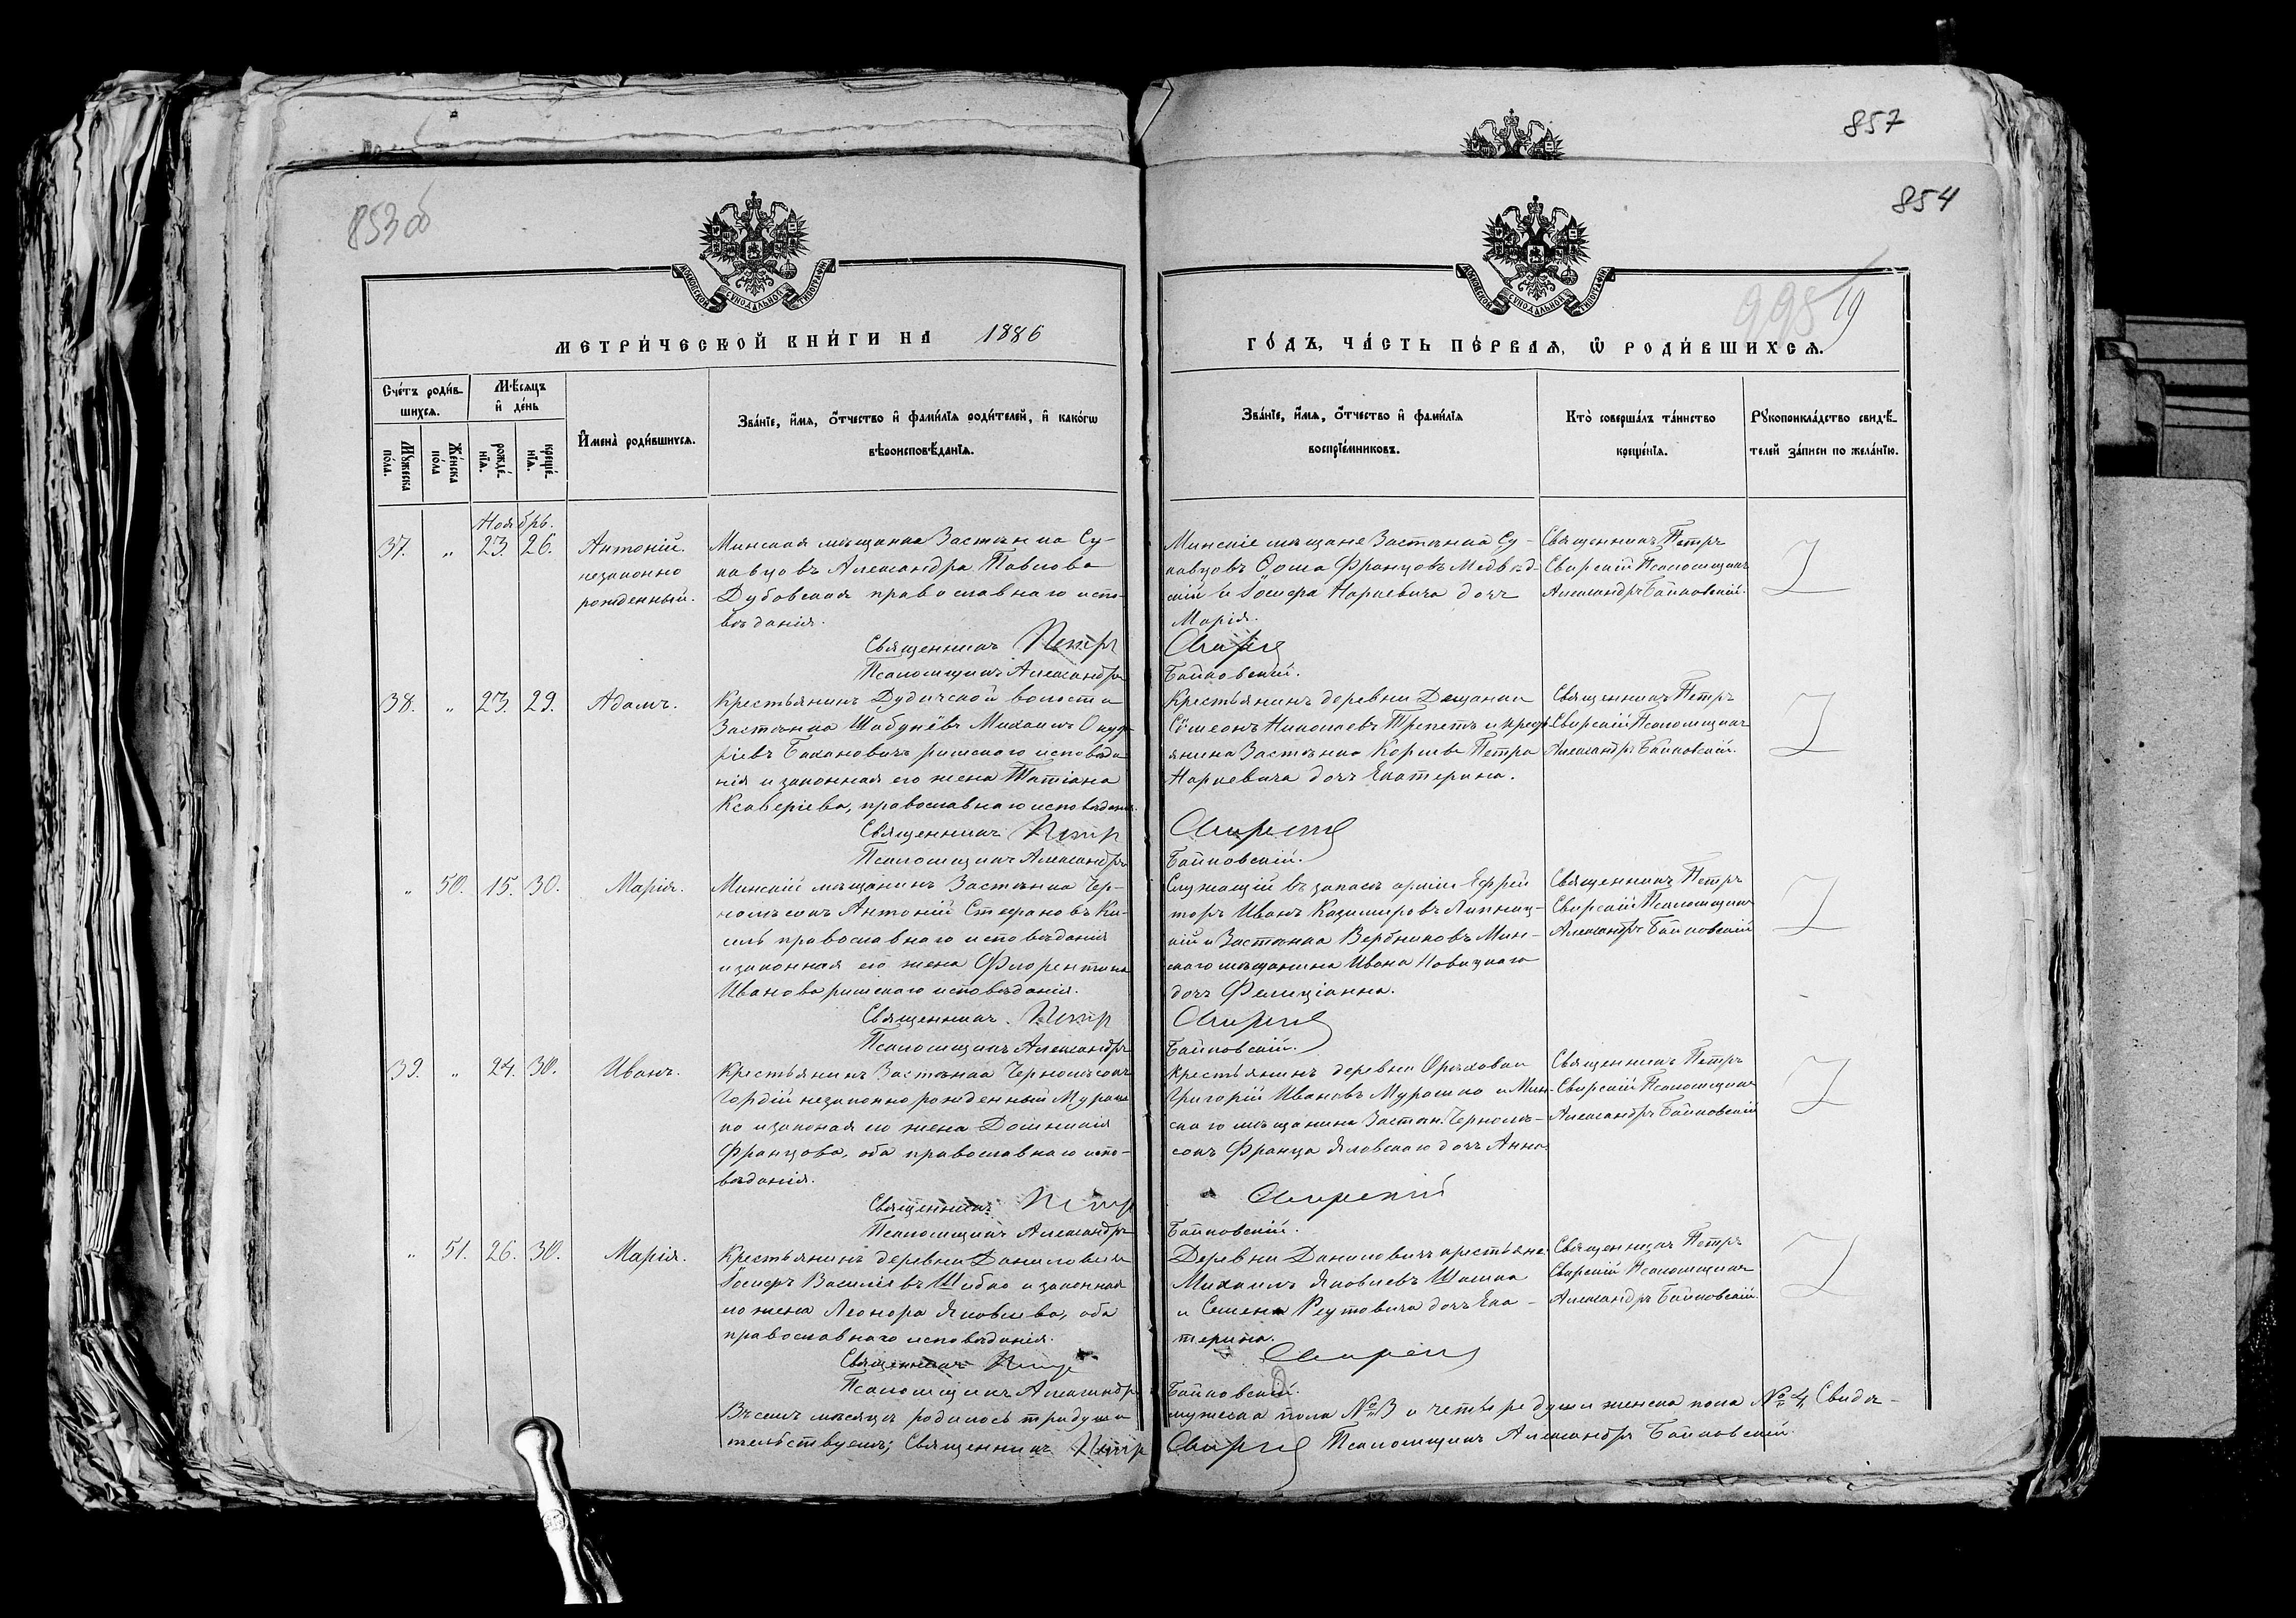 857
853 об
854
МОСКОВСКОЙ СУНОДАЛЬНОЙ ТИПОГРАФІИ
МОСКОВСКОЙ СУНОДАЛЬНОЙ ТИПОГРАФІИ
998
19
МЕТРИ́ЧЕСКОЙ КНИ́ГИ НА 1886
ГО́ДЪ, ЧА́СТЬ ПЕ́РВАЯ, Ѡ РОДИ́ВШИХСЯ.
Сче́тъ роди́в-
шихся.
Мѣ́сяцъ
и҆ де́нь
Му́жеска
по́ла.
Же́нска
по́ла
рожде́-
нїя.
креще́-
нїя.
И҆мена̀ роди́вшихся.
Зва́нїе, и҆́мя, ѻ҆́тчество и҆ фами́лїя роди́телей, и҆ како́гѡ
вѣроисповѣ́данїя.
Зва́нїе, и҆́мя, ѻ҆́тчество и҆ фами́лїя
воспрїе́мниковъ.
Кто̀ соверша́лъ та́инство
креще́нїя.
Рукоприкла́дство свидѣ́-
телей за́писи по жела́нїю.
Ноябрь.
37. „ 23. 26.
Антоній.
незаконно
рожденный.
Минская мѣщанка Застѣнка Су-
кавцовъ Александра Павлова
Дубовская православнаго испо-
вѣданія.
Священникъ Петръ
Псаломщикъ Александръ
Минскіе мѣщане Застѣнка Су-
кавцовъ Ѳома Францовъ Медвѣд-
скій и Іосифа Наркевича дочь
Марія.
Свирскій
Байковскій.
Священникъ Петръ
Свирскій Псаломщикъ
Александръ Байковскій.
38. „ 23. 29.
Адамъ.
Крестьянинъ Дудичской волости
Застѣнка Шабунёвъ Михаилъ Онуф-
ріевъ Баханович римскаго исповѣда-
нія и законная его жена Татіана
Ксаверіева, православнаго исповѣданія.
Священникъ Петръ
Псаломщикъ Александръ
Крестьянинъ деревни Дещанки
Сѷмеонъ Николаевъ Трепетъ и крест-
янина Застѣнка Петра
Наркевича дочь Екатерина.
Свирскій
Байковскій.
Священникъ Петръ
Свирскій Псаломщикъ
Александръ Байковскій.
„ 50. 15. 30.
Марія.
Минскій мѣщанинъ Застѣнка Чер-
нолѣсокъ Антоній Стефановъ Ки-
сель православнаго исповѣданія
и законная его жена Флорентина
Иванова римскаго исповѣданія.
Священникъ Петръ
Псаломщикъ Александръ
Служащій въ запасѣ арміи Ефрей-
торъ Иванъ Казимировъ Липниц-
кій и Застѣнка Вербниковъ Мин-
скаго мѣщанина Ивана Новицкаго
дочь Фелиціанна.
Свирскій
Байковскій.
Священникъ Петръ
Свирскій Псаломщикъ
Александръ Байковскій
39. „ 24. 30.
Иванъ.
Крестьянинъ Застѣнка Чернолѣсокъ
Гордій незаконно рожденный Мураш-
ко и законая его жена Доминикія
Францова, оба православнаго испо-
вѣданія.
Священникъ Петръ
Псаломщикъ Александръ
Крестьянинъ деревни Орѣховки
Григорій Ивановъ Мурашко и Мин-
скаго мѣщанина Застѣн. Чернолѣ-
сокъ Франца Яловскаго дочь Анна.
Свирскій
Байковскій.
Священникъ Петръ
Свирскій Псаломщикъ
Александръ Байковскій
„ 51. 26. 30.
Марія.
Крестьянинъ деревни Даниловичи
Іосифъ Василіевъ Шибко и законная
его жена Леонора Яковлева, оба
православнаго исповѣданія.
Священникъ Петръ
Псаломщикъ Александръ
Деревни Даниловичъ крестьяне
Михаилъ Яковлевъ Шашка
и Семена Реутовича дочь Ека-
терина.
Свирскій
Байковскій.
Священникъ Петръ
Свирскій Псаломщикъ
Александръ Байковскій.
Въ семъ мѣсяцѣ родилось три души мужеска пола № 3 и четыре души женска пола № 4, Свидѣ-
тельствуемъ; Священникъ Петръ Свирскій Псаломщикъ Александръ Байковскій.